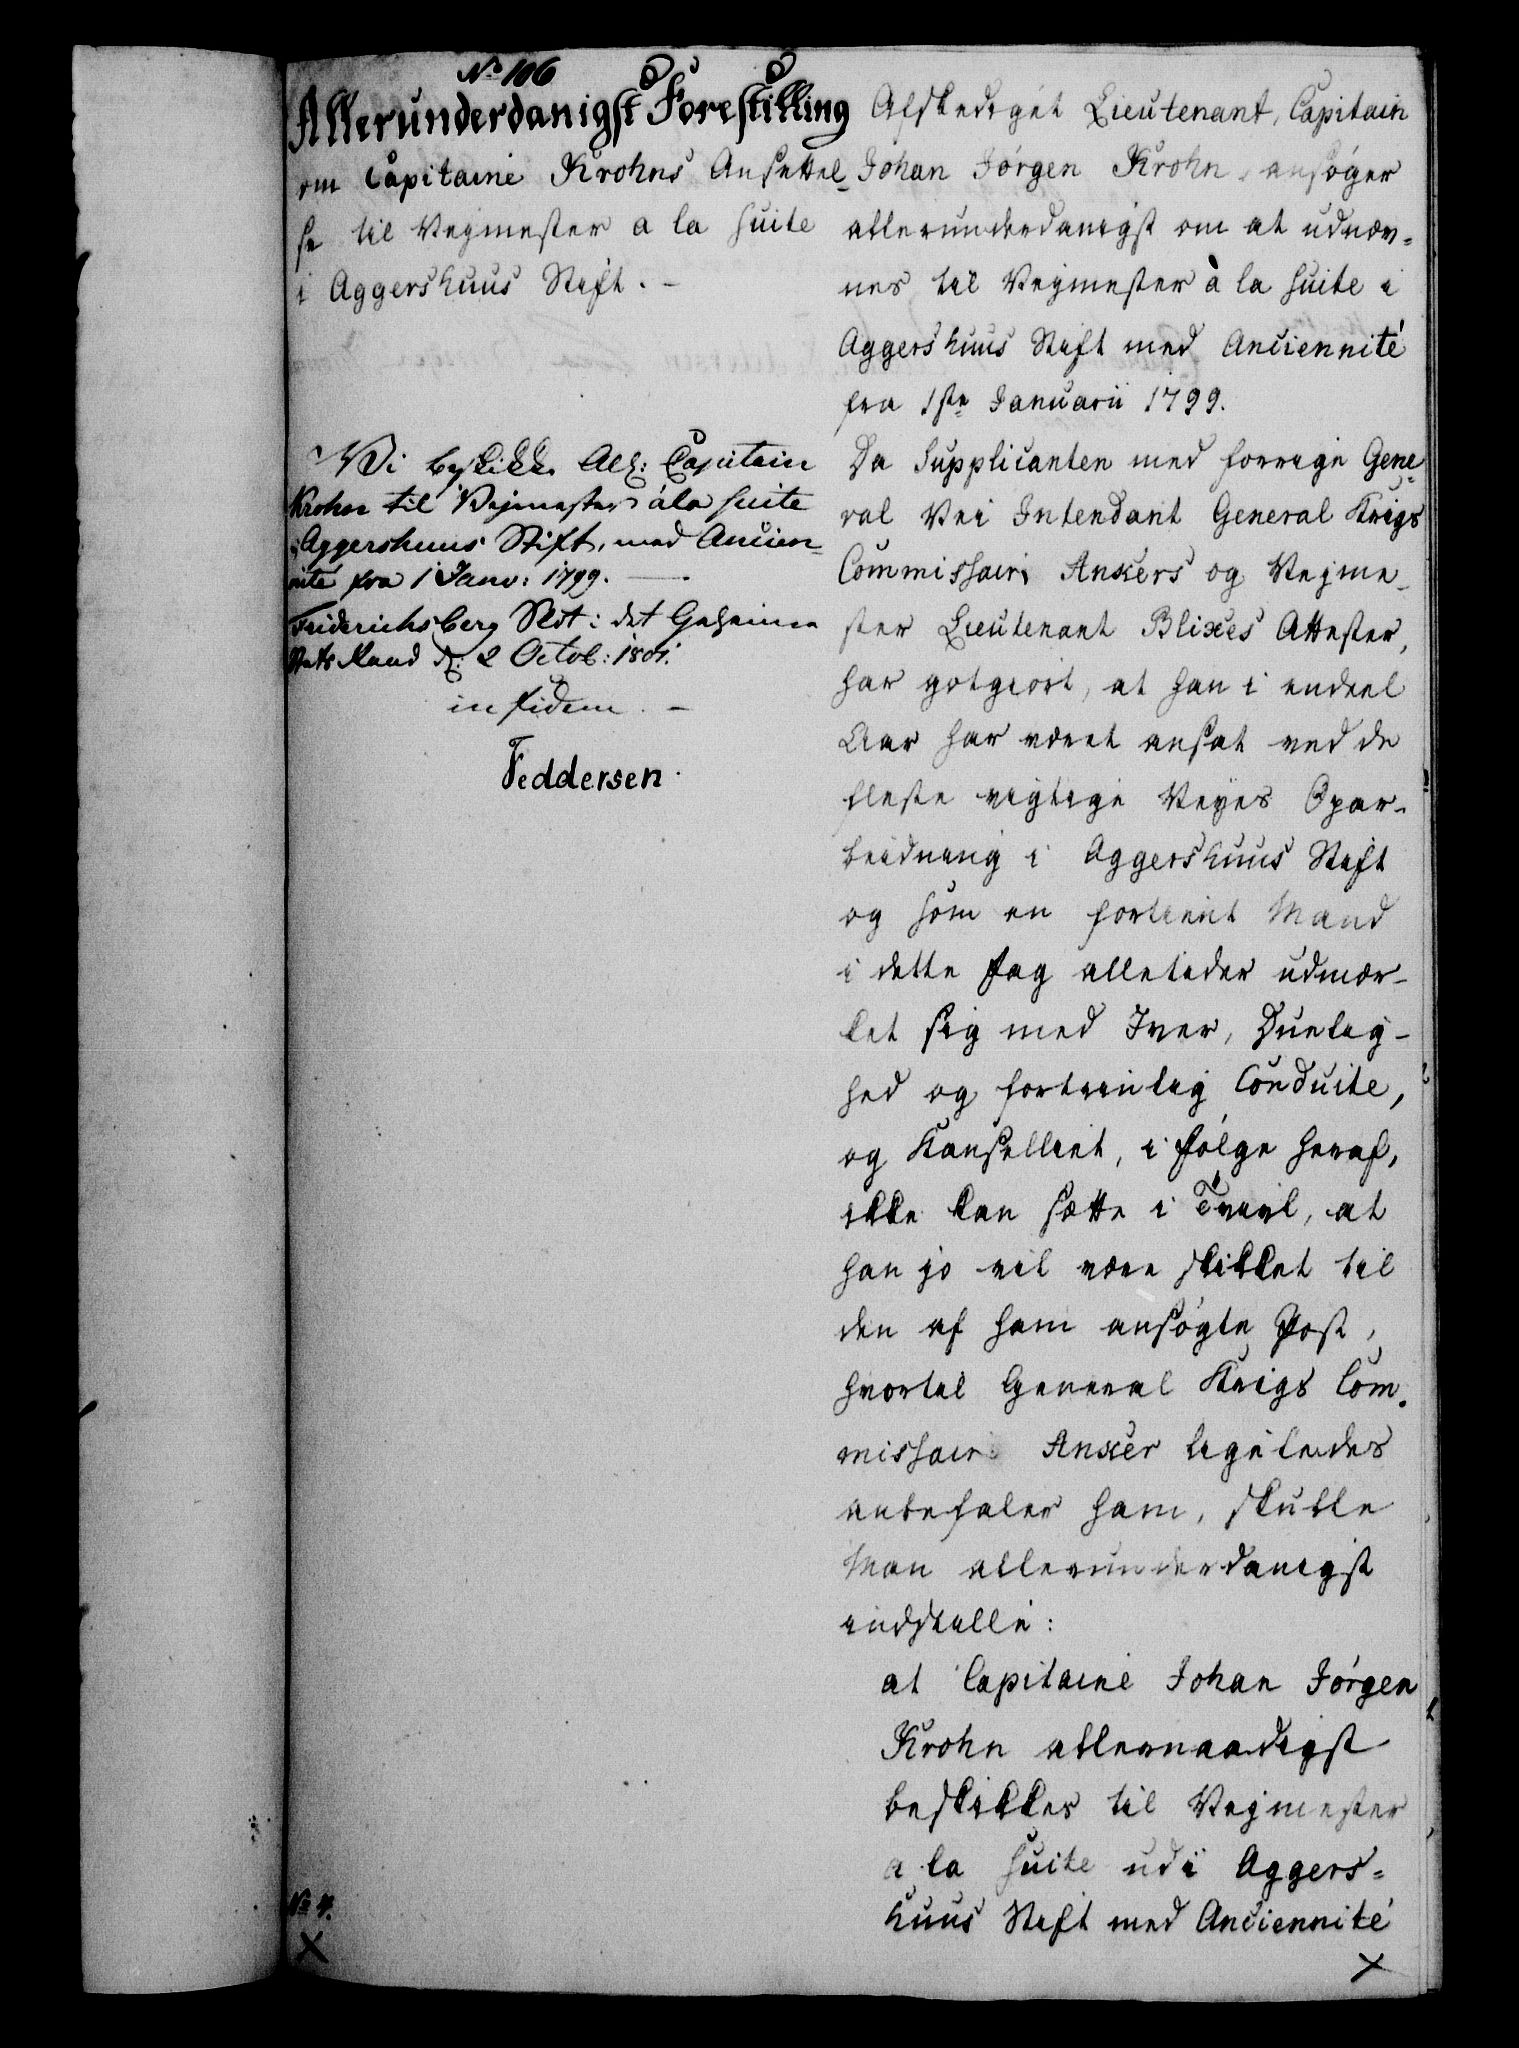 No 106
Allerunderdanigst Forestilling
om Capitaine Krohns Ansettel-
se til Vejmester a la suite
i Aggershuus Stift. -
Vi beskikke Afs: Capitain
Krohn til Vejmester à la suite
i Aggershuus Stift, med Ancien-
nité fra 1 Janv: 1799. —
Friderichsberg Slot i det Geheime
Stats Raad d: 2 Octob: 1801.
in fidem. -
Feddersen.
No 4.
X
Afskediget Lieutenant, Capitain
Johan Jórgen Krohn, ansøger
allerunderdanigst om at udnæv=
nes til Vejmester à la suite i
Aggershuus Stift med Anciennité
fra 1ste Januarii 1799.
Da Supplicanten med forrige Gene-
ral Vei Intendant General Krigs
Commissair Ankers og Vejme-
ster Lieutenant Blixes Attester,
har gotgiort, at han i endeel
Aar har været ansat ved de
fleste vigtige Veyes Opar-
beidning i Aggershuus Stift
og som en fortient Mand
i dette Fag alletider udmær-
ket sig med Iver, Duelig-
hed og fortrinlig Conduite,
og Kanselliet, i følge heraf,
ikke kan sætte i Tvivl, at
han jo vil være skikket til
den af ham ansøgte Post,
hvortil General Krigs Com-
missair Anker ligeledes
anbefaler ham, skulle
Man allerunderdanigst
indstille:
at Capitaine Johan Jórgen
Krohn allernaadigst
beskikkes til Vejmester
a la suite udi Aggers=
huus Stift med Anciennité
X